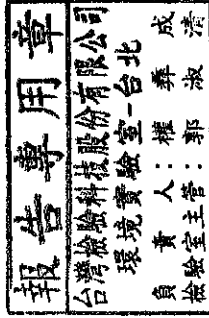 報告專用章
台灣檢驗科技股份有限公司
環境實驗室-台北
負責人：楊彝成
檢驗室主管：郭淑清